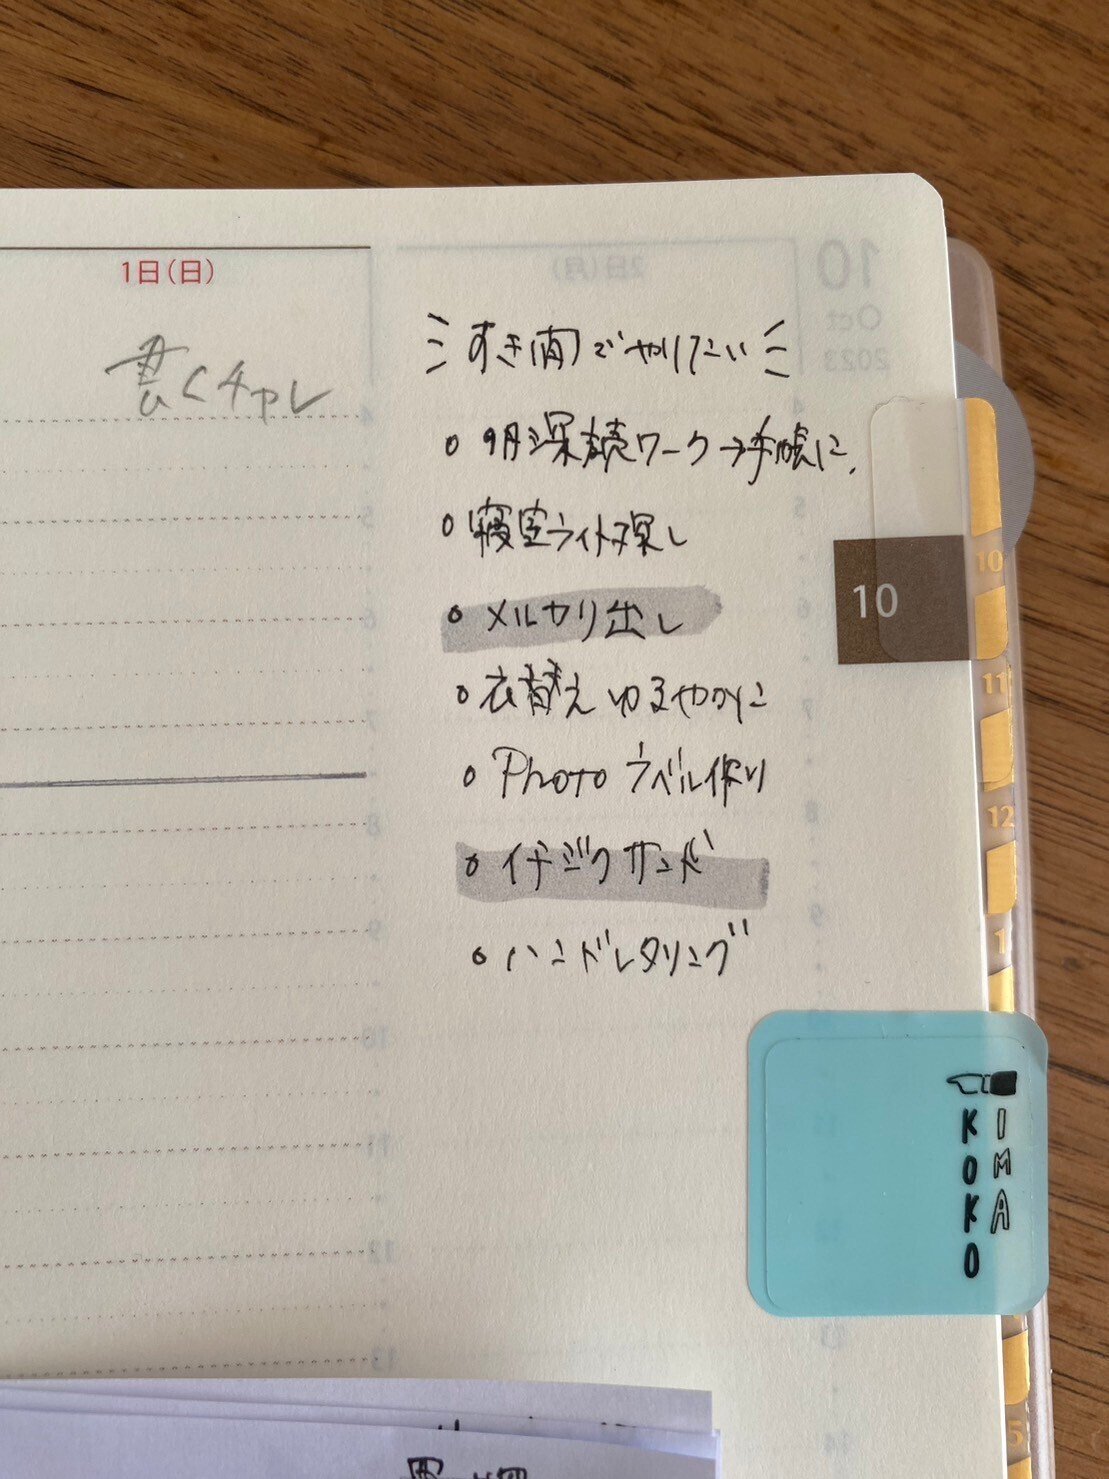 1日(日)
書くチャレ
すき間でやりたい
○ 9月 継続ワーク→手帳に
○ 寝室ライト探し
○ メルカリ出し
○ 衣替えゆるやかに
○ Photo ラベル作り
○ イチジクサンド
○ ハンドレタリング
10
10
11
12
1
5
IMA
KOKO
2日(月)
10
Oct
2023
4
5
6
7
8
9
10
11
12
13
14